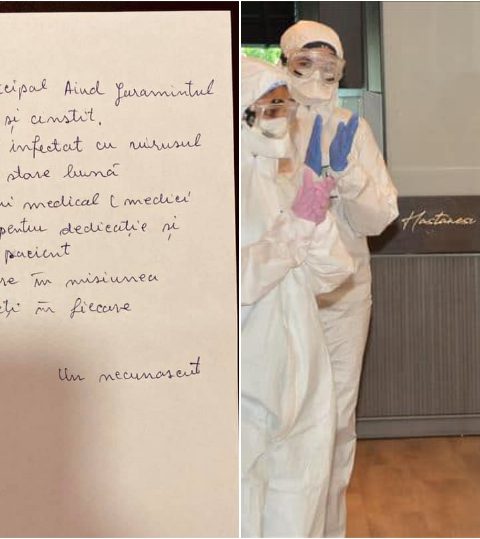 cipal Aind Juramintul
și cinstit.
infectat cu virusul
stare bună
ui medical ( medici
pentru dedicație și
pacient
re în misiunea
ți în fiecare
Un necunascut
Hastanesi